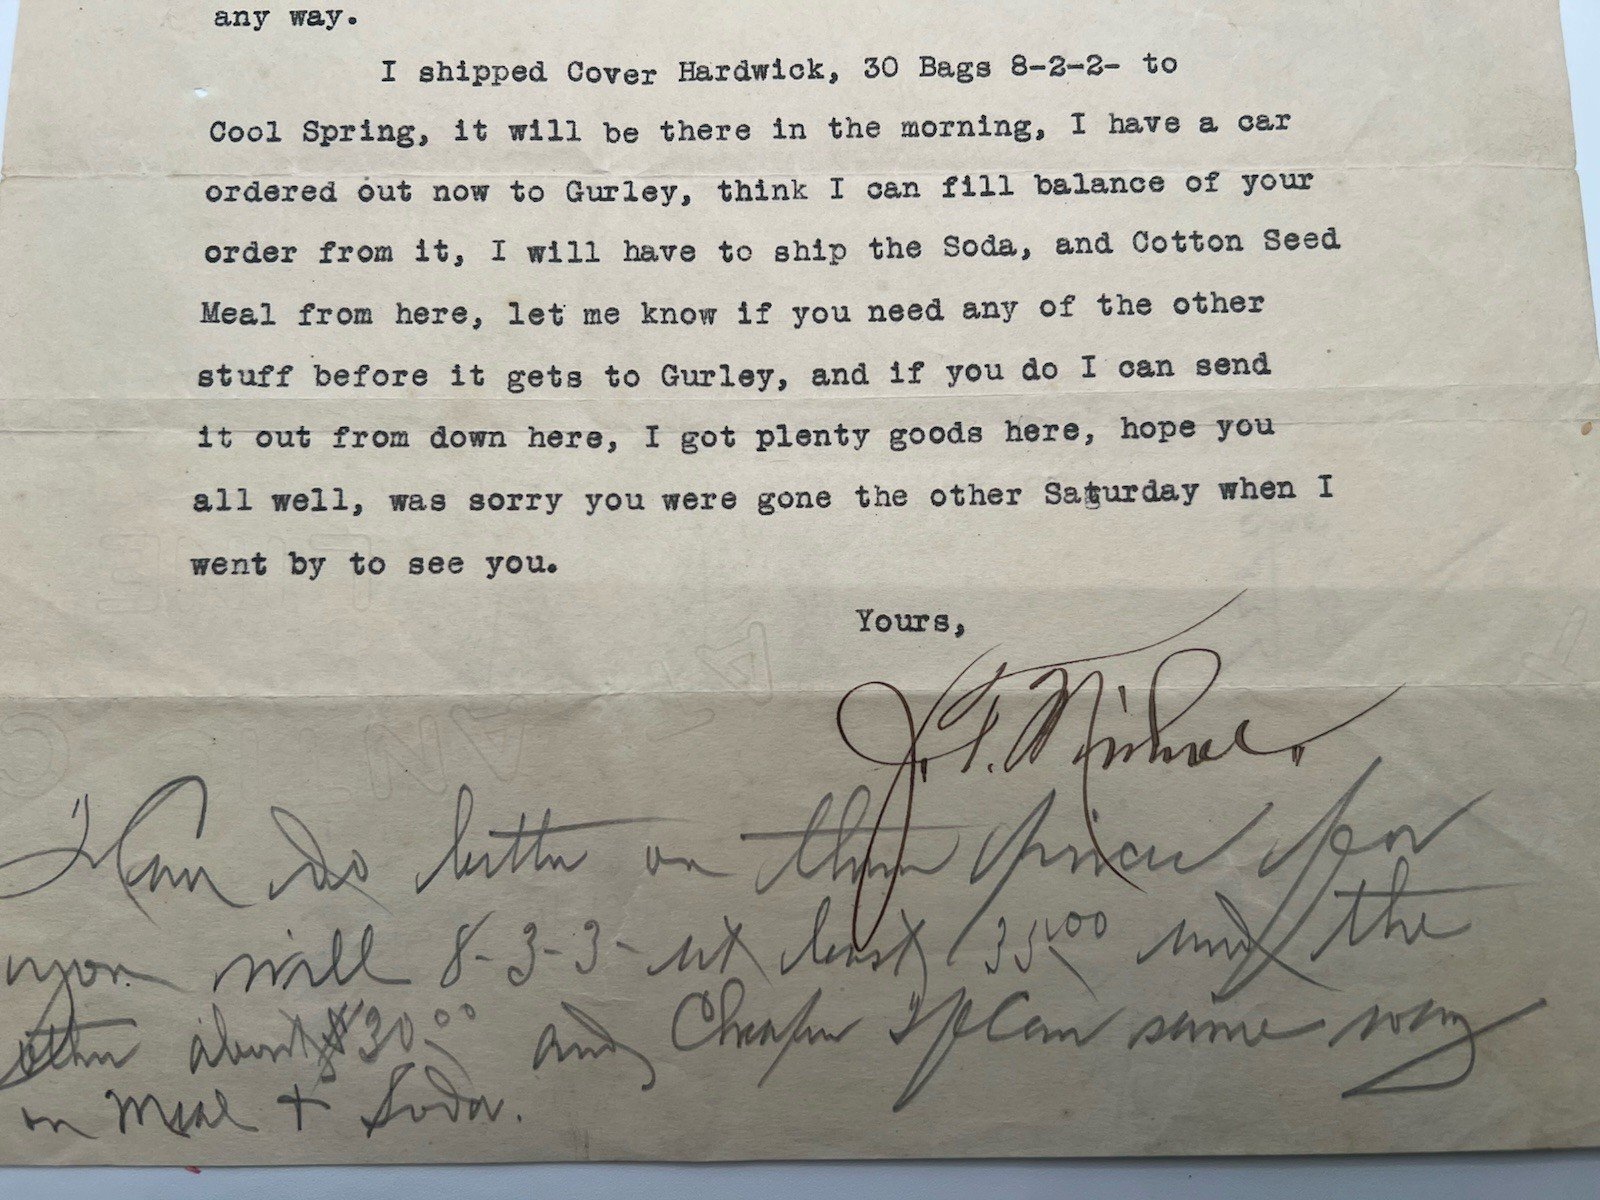 any way.
I shipped Cover Hardwick, 30 Bags 8-2-2- to
Cool Spring, it will be there in the morning, I have a car
ordered out now to Gurley, think I can fill balance of your
order from it, I will have to ship the Soda, and Cotton Seed
Meal from here, let me know if you need any of the other
stuff before it gets to Gurley, and if you do I can send
it out from down here, I got plenty goods here, hope you
all well, was sorry you were gone the other Saturday when I
went by to see you.
Yours,
J. T.
I Can do better on these prices for
you will 8-3-3- at least 35.00 and the
other about $30.00 and Cheaper if Can same way
on Meal + Soda.